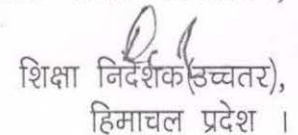 शिक्षा निदेशक(उच्चतर),
हिमाचल प्रदेश ।